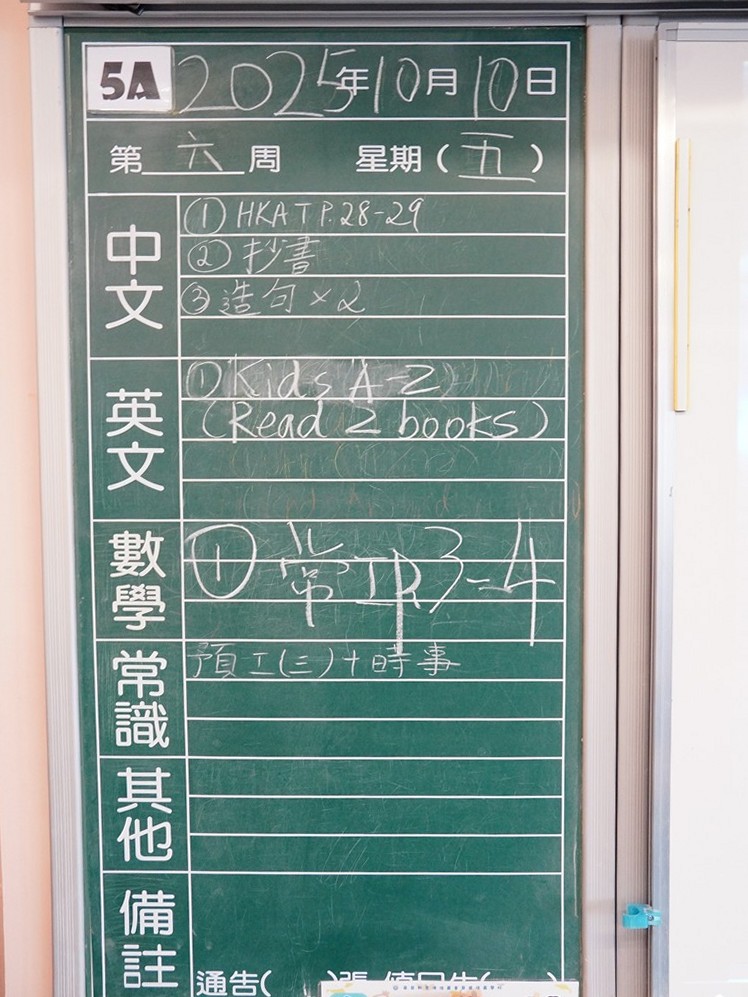 5A 2025年10月10日
第六周 星期(五)
中文
① HKAT P.28-29
② 抄書
③ 造句 × 2
英文
① Kids A-Z
(Read 2 books)
數學
① 常工P.3-4
常識
預工(三)+時事
其他
備註
通告( )張